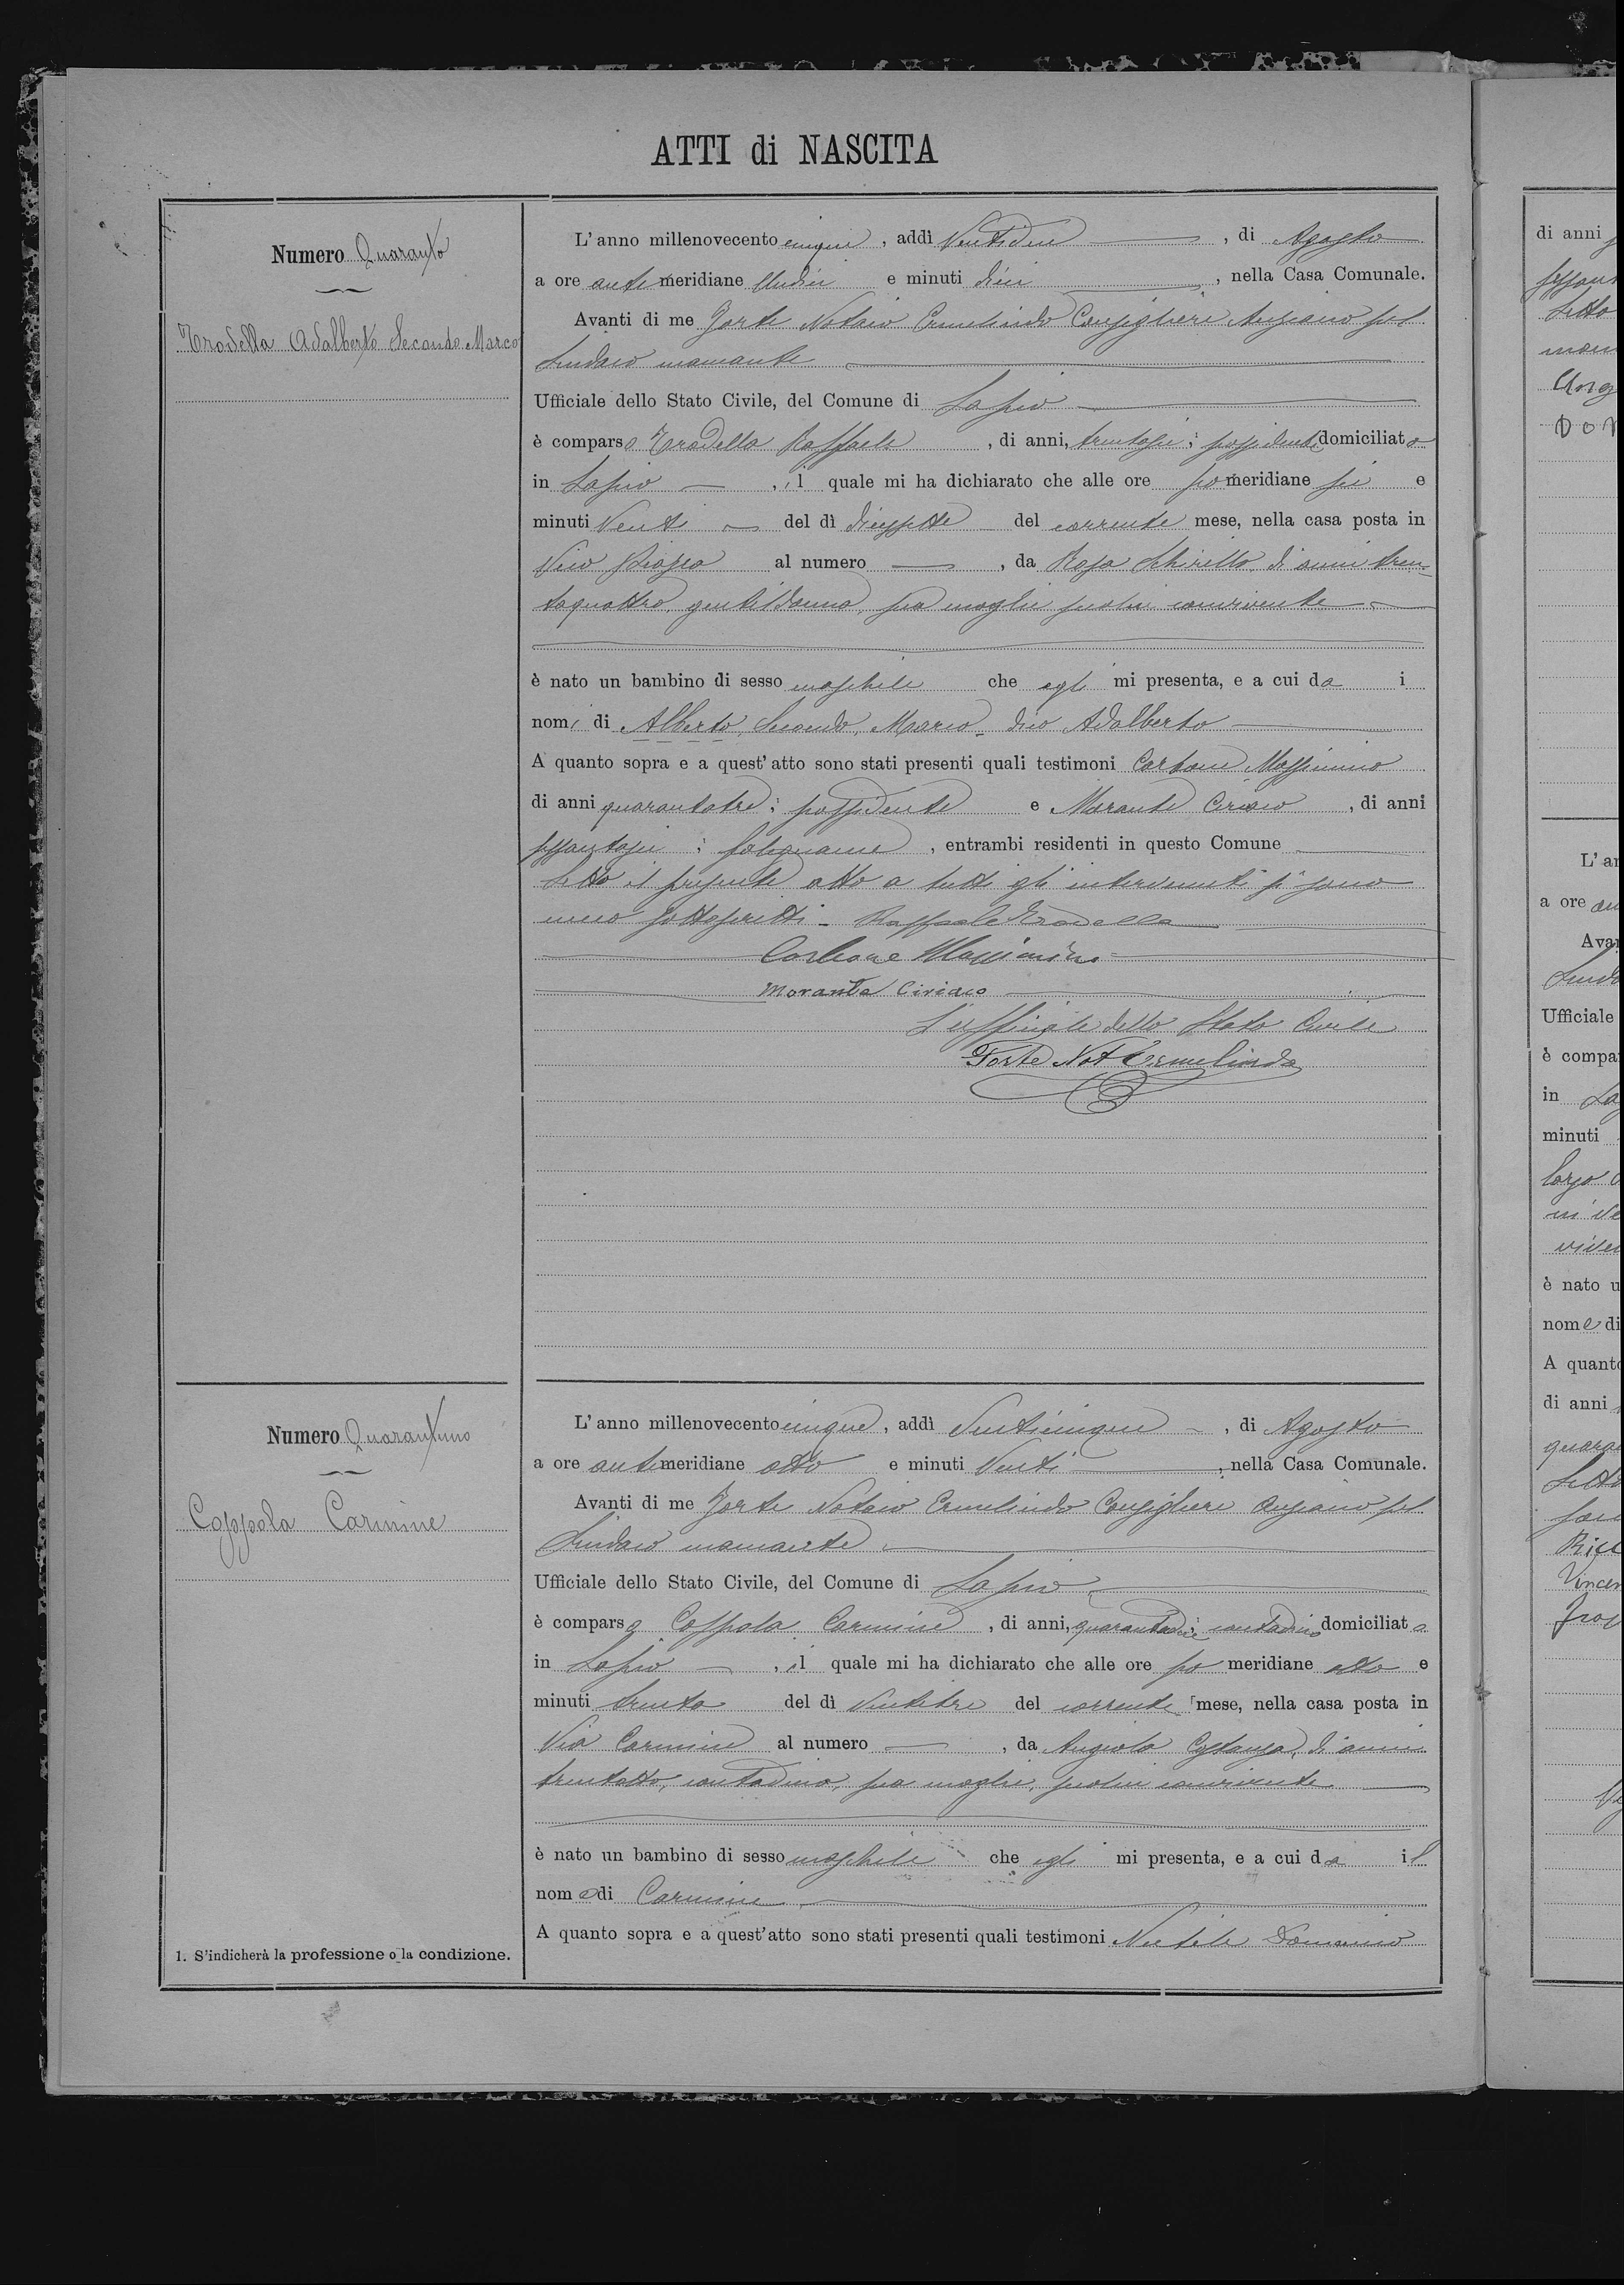 ATTI di NASCITA
Numero Quaranta
Trodella Adalberto Secondo Marco
L'anno millenovecento cinque, addì Ventidue, di Agosto
a ore antemeridiane Undici e minuti dieci, nella Casa Comunale.
Avanti di me Forte Notaio Ermelindo Consigliere Anziano pel
Sindaco mancante
Ufficiale dello Stato Civile, del Comune di Lapio
è comparso Trodella Raffaele, di anni, trentasei; possidente domiciliato
in Lapio, il quale mi ha dichiarato che alle ore pomeridiane sei e
minuti Venti del dì diciassette del corrente mese, nella casa posta in
Vico al numero, da Rosa Schirillo, di anni tren-
taquattro, gentildonna, sua moglie seco lui convivente
è nato un bambino di sesso maschile che egli mi presenta, e a cui da i
nomi di Alberto, Secondo, Marco_ dico Adalberto
A quanto sopra e a quest'atto sono stati presenti quali testimoni Carbone Massimino
di anni quarantatre; possidente e Morante Ciriaco, di anni
sessantasei; falegname, entrambi residenti in questo Comune
Letto il presente atto a tutti gli intervenuti si sono
meco sottoscritti_ Raffaele Trodella
Carbone Massimino
Morante Ciriaco
L'uffiziale dello Stato Civile
Forte Not Ermelindo
Numero Quarantuno
Coppola Carmine
L'anno millenovecento cinque, addì Venticinque, di Agosto
a ore antemeridiane otto e minuti Venti, nella Casa Comunale.
Avanti di me Forte Notaio Ermelindo Consigliere Anziano pel
Sindaco mancante
Ufficiale dello Stato Civile, del Comune di Lapio
è comparso Coppola Carmine, di anni, contadino domiciliato
in Lapio, il quale mi ha dichiarato che alle ore po meridiane otto e
minuti trenta del dì Ventitre del corrente mese, nella casa posta in
Via Carmine al numero, da Angiola Costanza, di anni
trentotto, contadina, sua moglie, seco lui convivente
è nato un bambino di sesso maschile che egli mi presenta, e a cui da il
nome di Carmine
A quanto sopra e a quest'atto sono stati presenti quali testimoni Domenico
1. S'indicherà la professione o la condizione.
di anni
Letto
L'
a ore
Sinda
Ufficiale
è compa
in
minuti
è nato
nome di
A quant
di anni